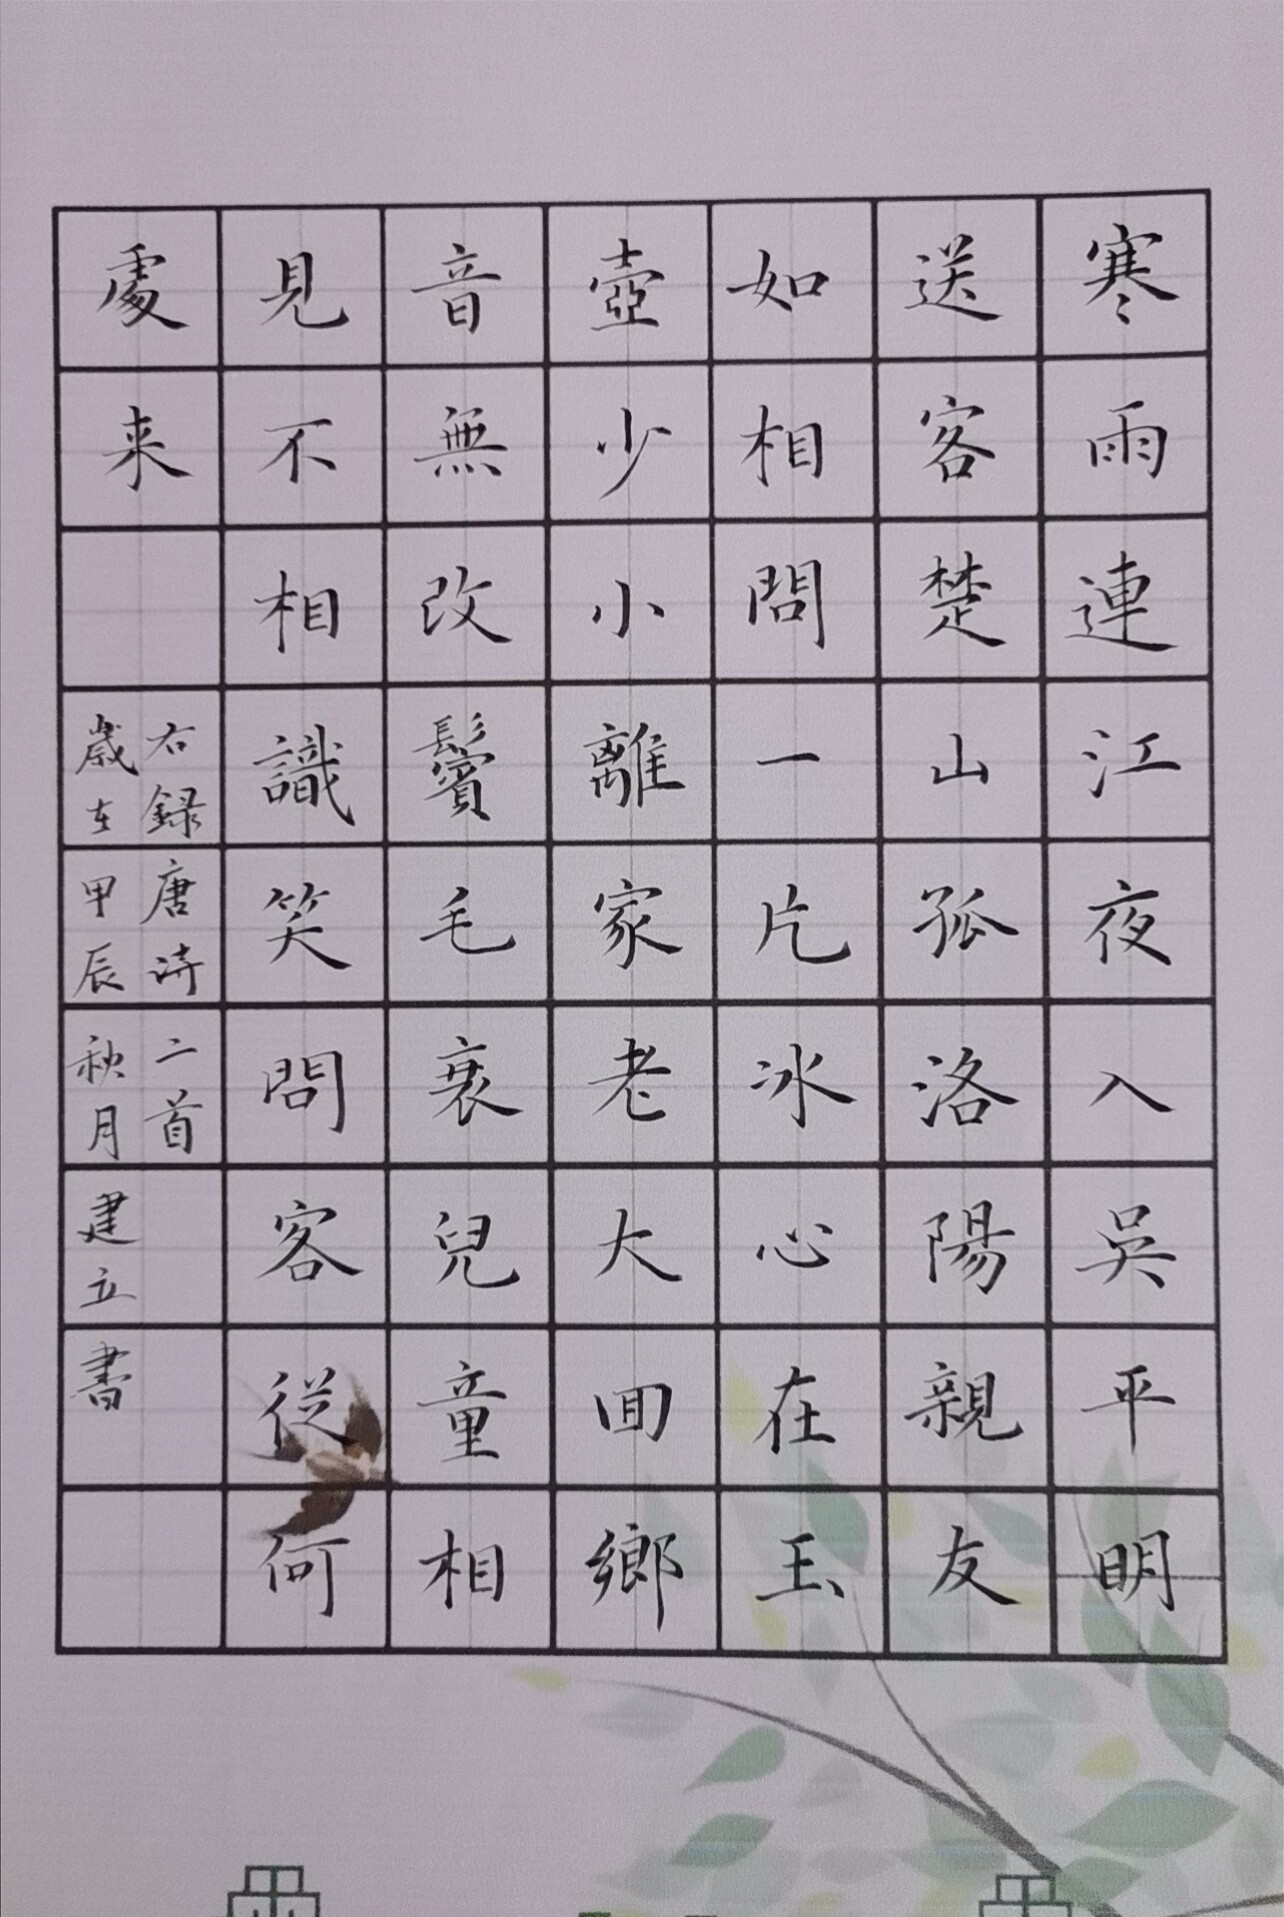 寒雨連江夜入吳平明
送客楚山孤洛陽親友
如相問一片冰心在玉
壺少小離家老大回鄉
音無改鬢毛衰兒童相
見不相識笑問客從何
處来
右録唐詩二首
歲在甲辰秋月建立書